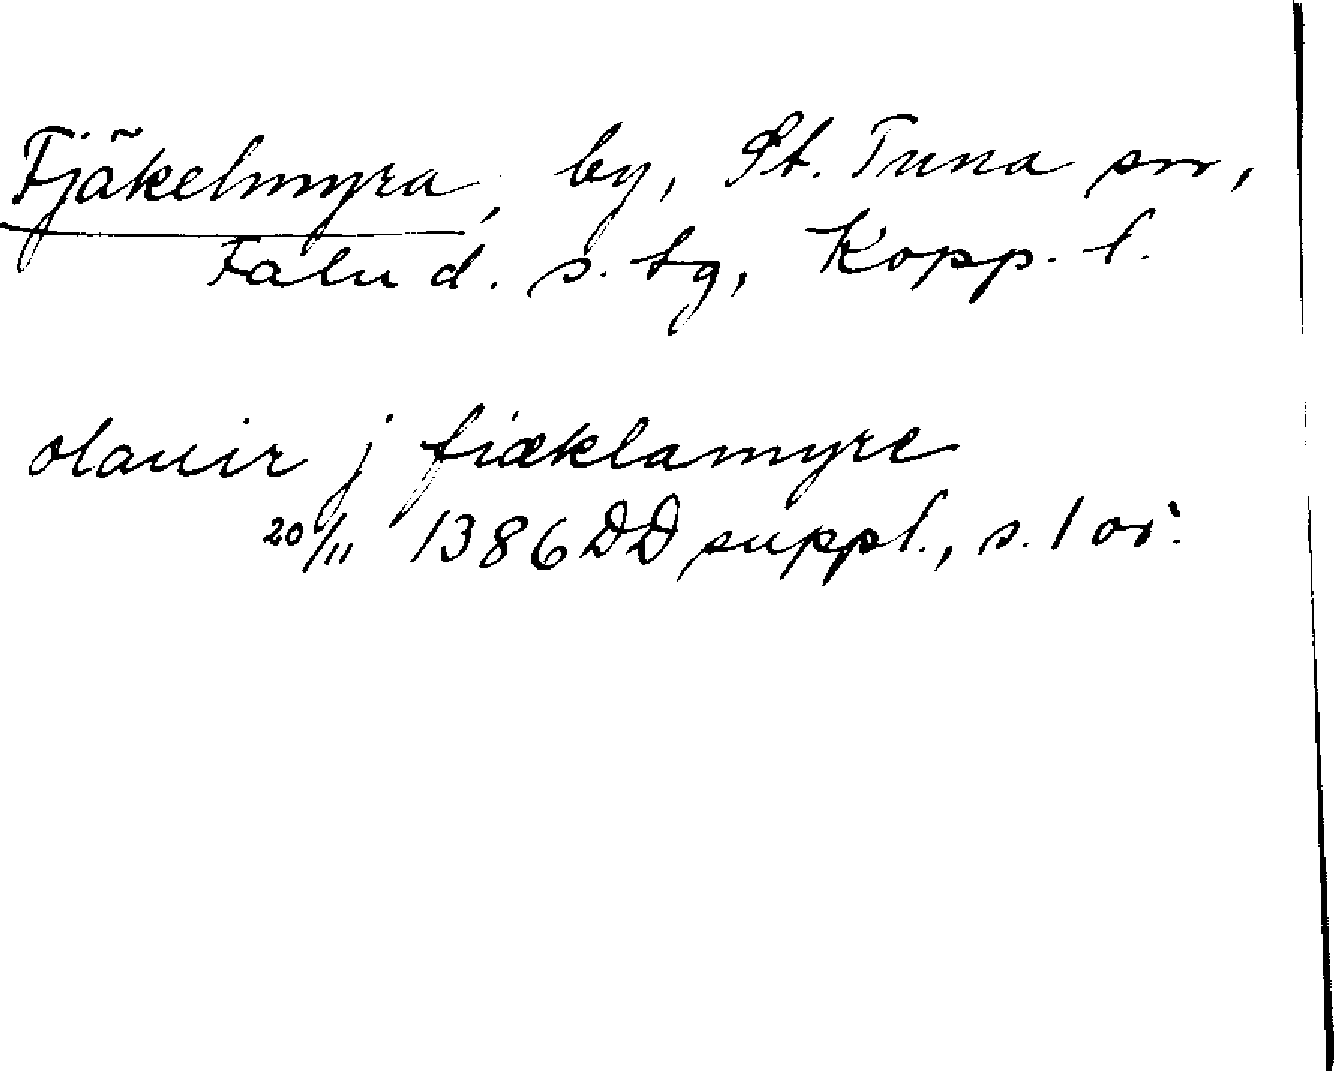 Fjäkelmyra, by, St. Tuna sn,
Falu d. s. tg, Kopp. l.
olauir j fiæklamyre
20/11 1386 DD suppl., s. 1 or.